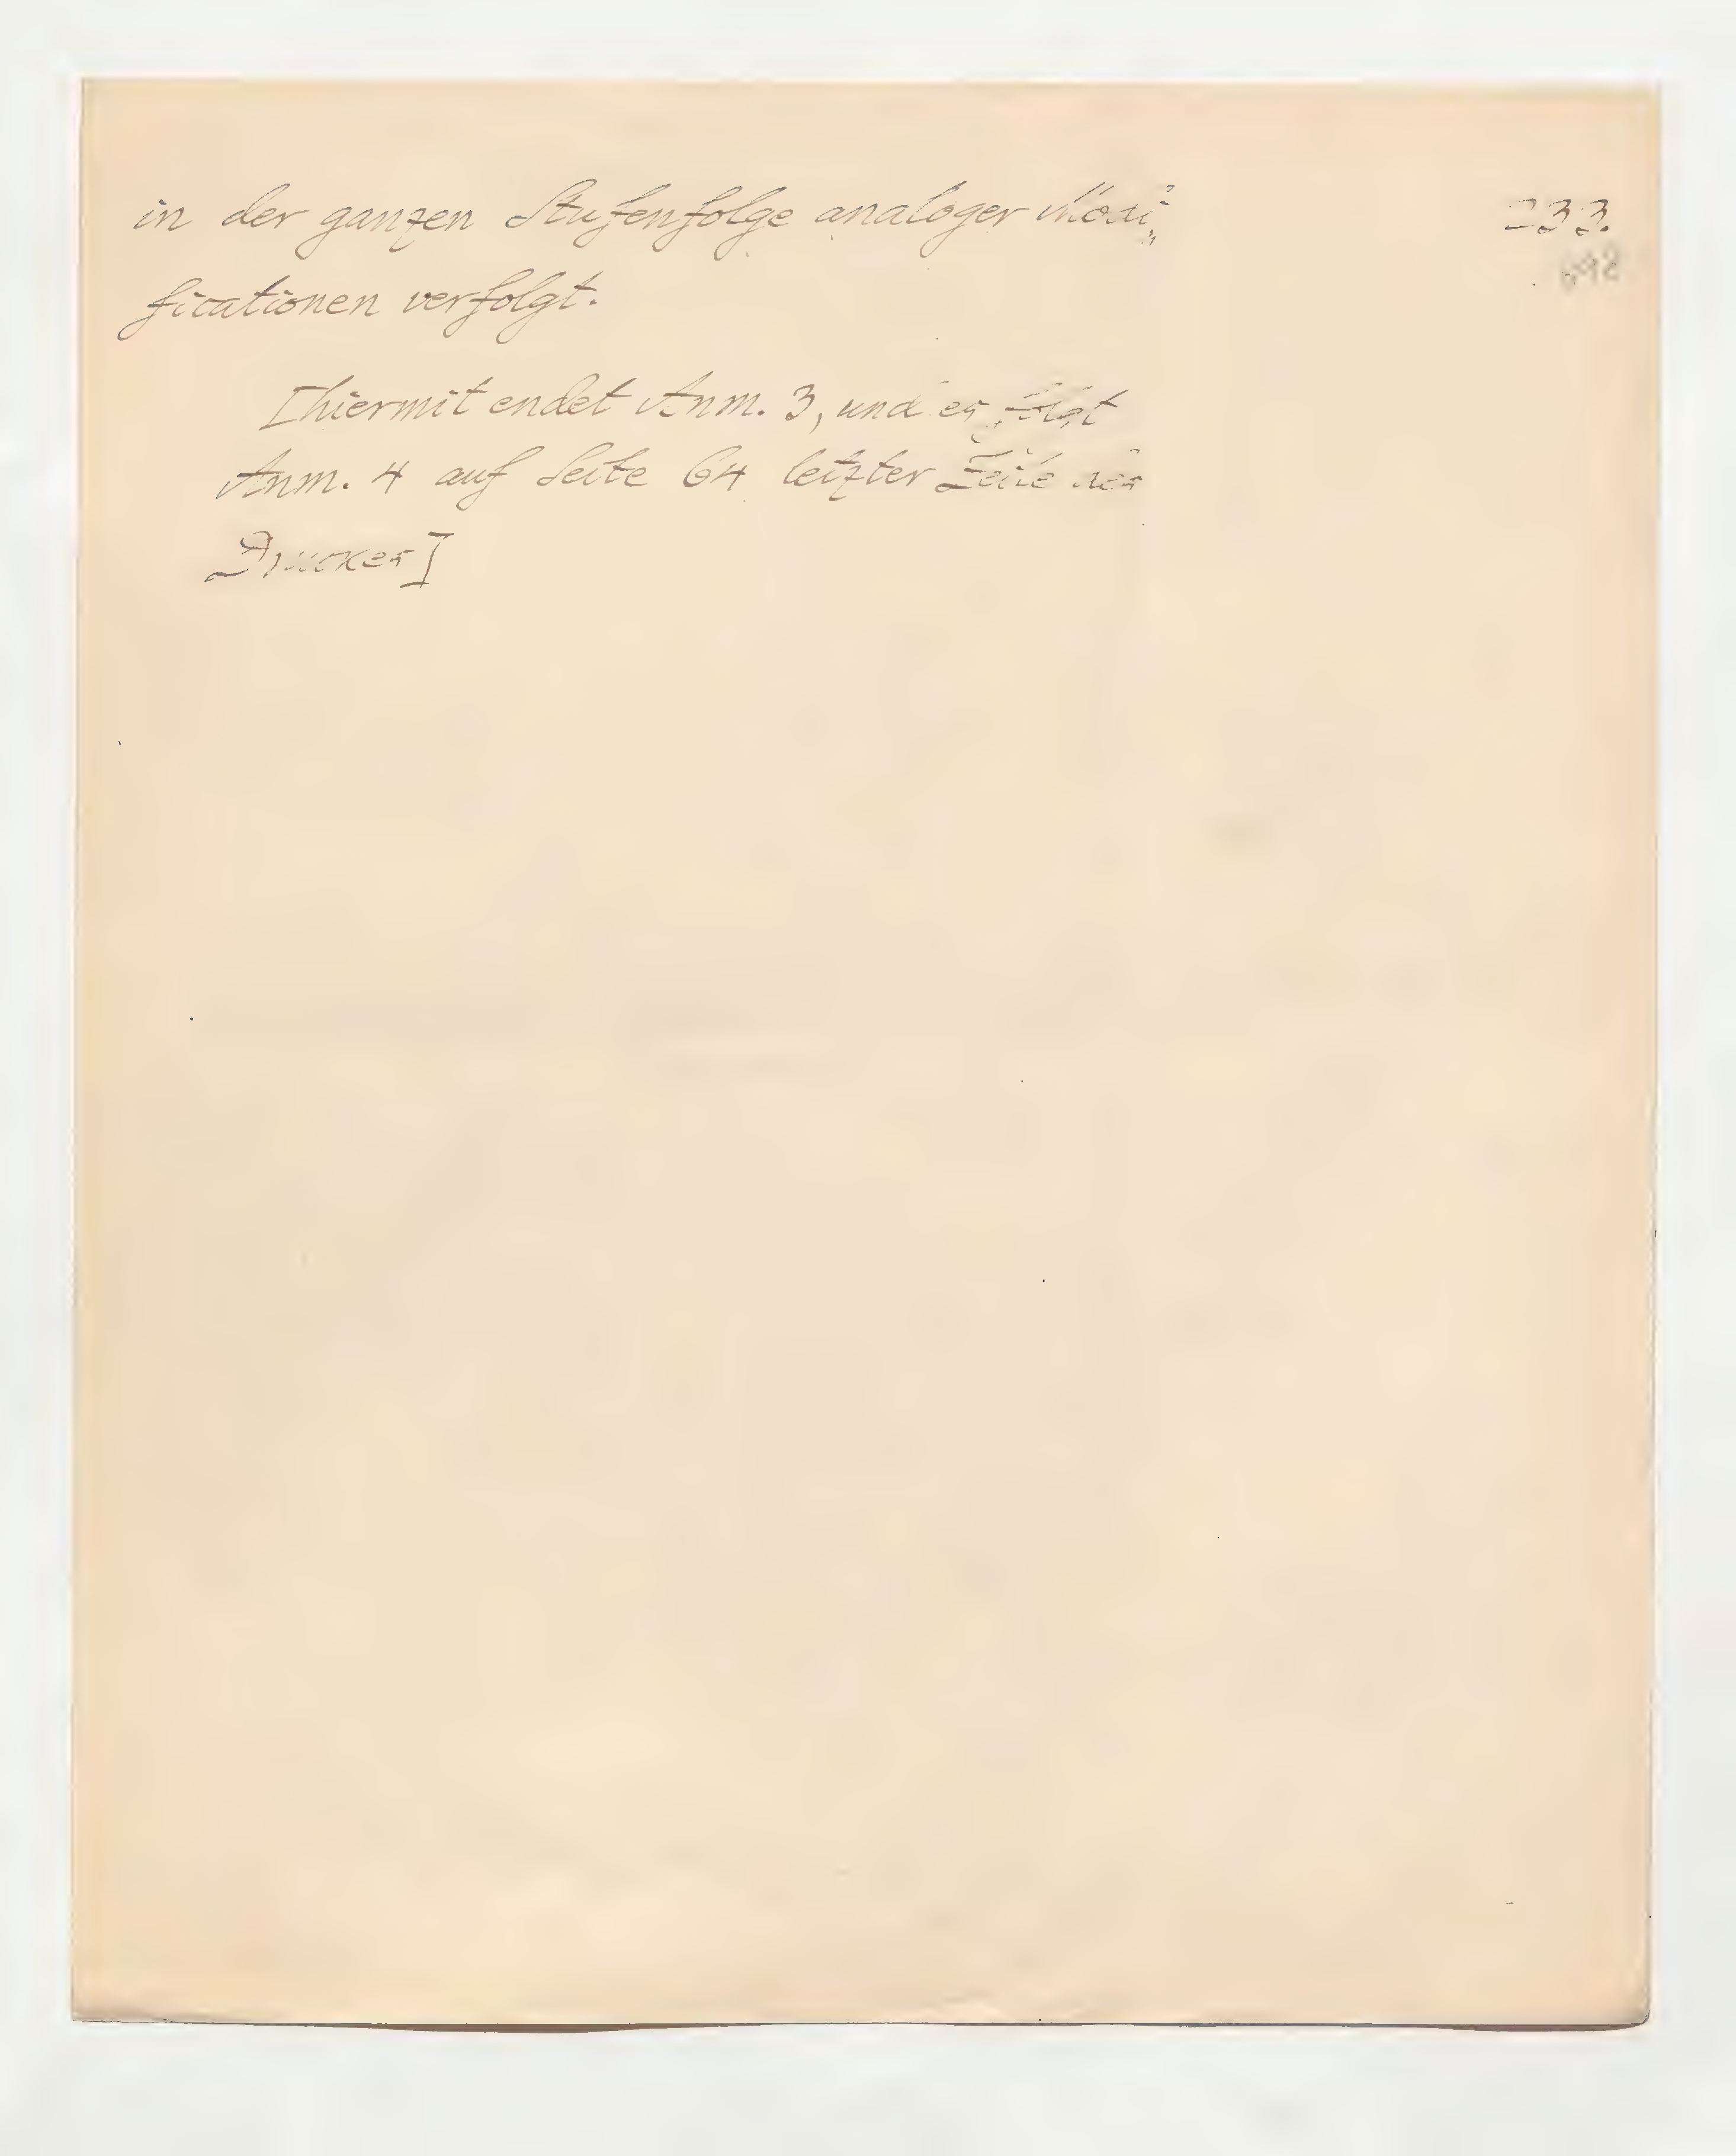 in der ganzen Stufenfolge analoger Modi„
233.
698
ficationen verfolgt.
[hiermit endet Anm. 3, und es folgt
Anm. 4 auf Seite 64 letzter Zeile des
Druckes]